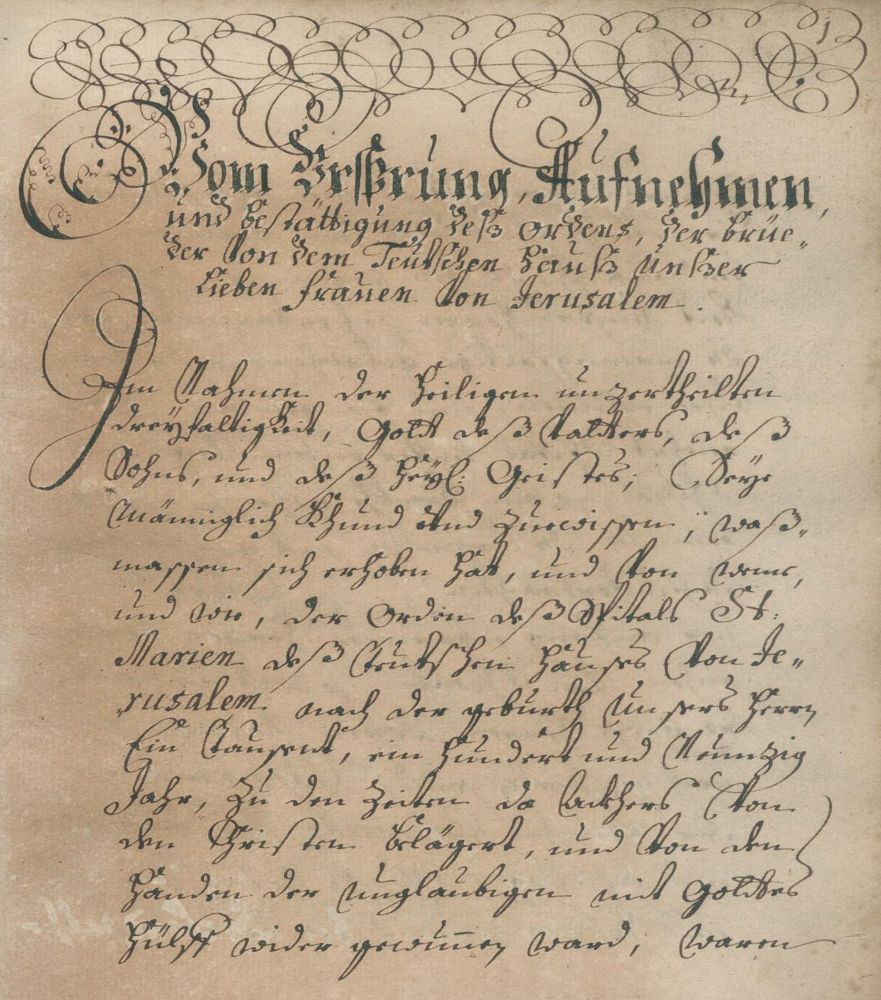 1
Vom Vrsprung, Aufnehmen,
und bestättigung deß ordens, der brüe„
der Von dem Teutschen Hauß Unßer
Lieben frauen Von Jerusalem.
Im Nahmen der Heiligen unzertheilten
dreyfaltigkeit, Gott deß Vatters, deß
Sohns, und deß Heyl: Geistes; Seye
Männiglich Khund und zuewissen, waß„
massen sich erhoben hat, und Von weme,
und wie, der Orden deß Spitals St:
Marien deß Teutschen Hauses Von Je„
rusalem nach der geburth Unsers Herrn
Ein Tausent, ein hundert und Neuntzig
Jahr, Zu den Zeiten da Ackhers Von
den Christen belägert, und Von den
Handen der Unglaubigen mit Gottes
Hülff wider gewunnen ward, waren